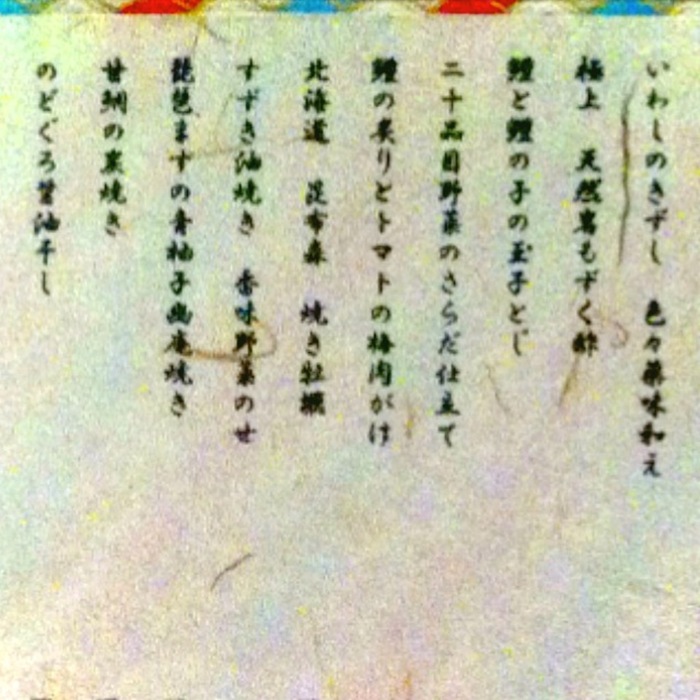 いわしのきずし 色々薬味和え
極上 天然岩もずく酢
鱧と鱧の子の玉子とじ
二十品目野菜のさらだ仕立て
鱧の炙りとトマトの梅肉がけ
北海道 昆布森 焼き牡蠣
すずき油焼き 香味野菜のせ
琵琶ますの青柚子幽庵焼き
甘鯛の炭焼き
のどぐろ醤油干し